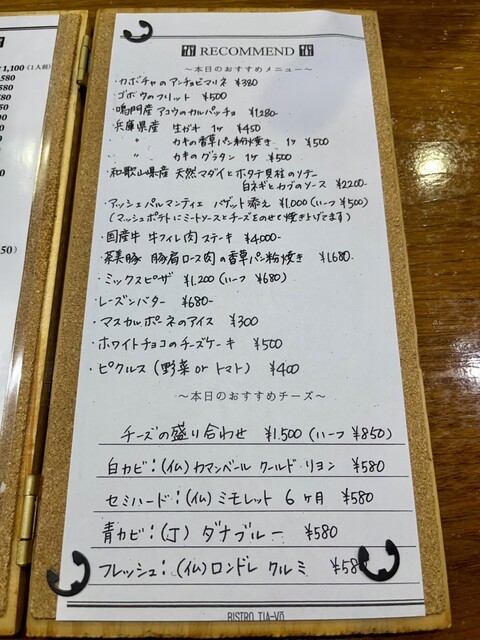 ¥1,100 (1人前)
580
580
RECOMMEND
～本日のおすすめメニュー～
・カボチャのアンチョビマリネ ¥380
・ゴボウのフリット ¥500
・鳴門産 アコウのカルパッチョ ¥1,280-
・兵庫県産 生ガキ 1ケ ¥450
〃 カキの香草パン粉焼き 1ケ ¥500
〃 カキのグラタン 1ケ ¥500
・和歌山県産 天然マダイとホタテ貝柱のソテー
白ネギとカブのソース ¥2200-
・アッシェパルマンティエ バゲット添え ¥1,000 (ハーフ ¥500)
(マッシュポテトにミートソースとチーズをのせて焼き上げてます)
・国産牛 牛フィレ肉ステーキ ¥4,000-
・茶美豚 豚肩ロース肉の香草パン粉焼き ¥1,680-
・ミックスピザ ¥1,200 (ハーフ ¥680)
・レーズンバター ¥680-
・マスカルポーネのアイス ¥300
・ホワイトチョコのチーズケーキ ¥500
・ピクルス (野菜 or トマト) ¥400
～本日のおすすめチーズ～
チーズの盛り合わせ ¥1,500 (ハーフ ¥850)
白カビ:(仏) カマンベール クールド リヨン ¥580
セミハード:(仏) ミモレット 6ヶ月 ¥580
青カビ:(丁) ダナブルー ¥580
フレッシュ:(仏) ロンドレ クルミ ¥580
BISTRO TIA-Vo